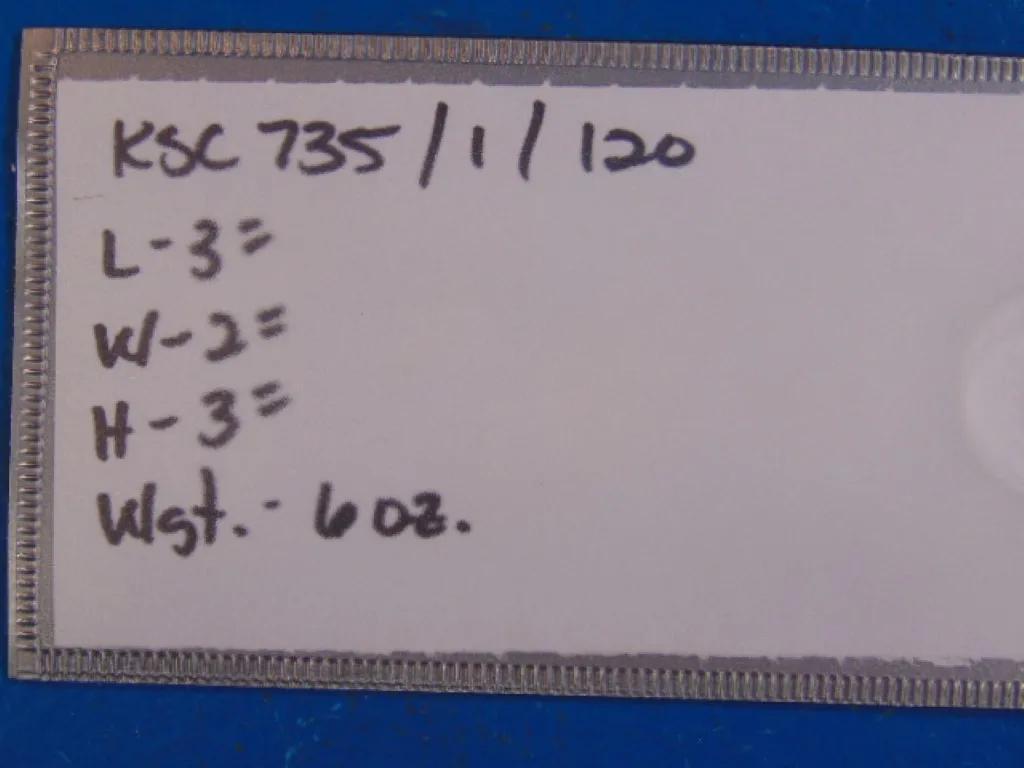 KSC 735/1/120
L-3=
W-2=
H-3=
Wgt.- 6 oz.